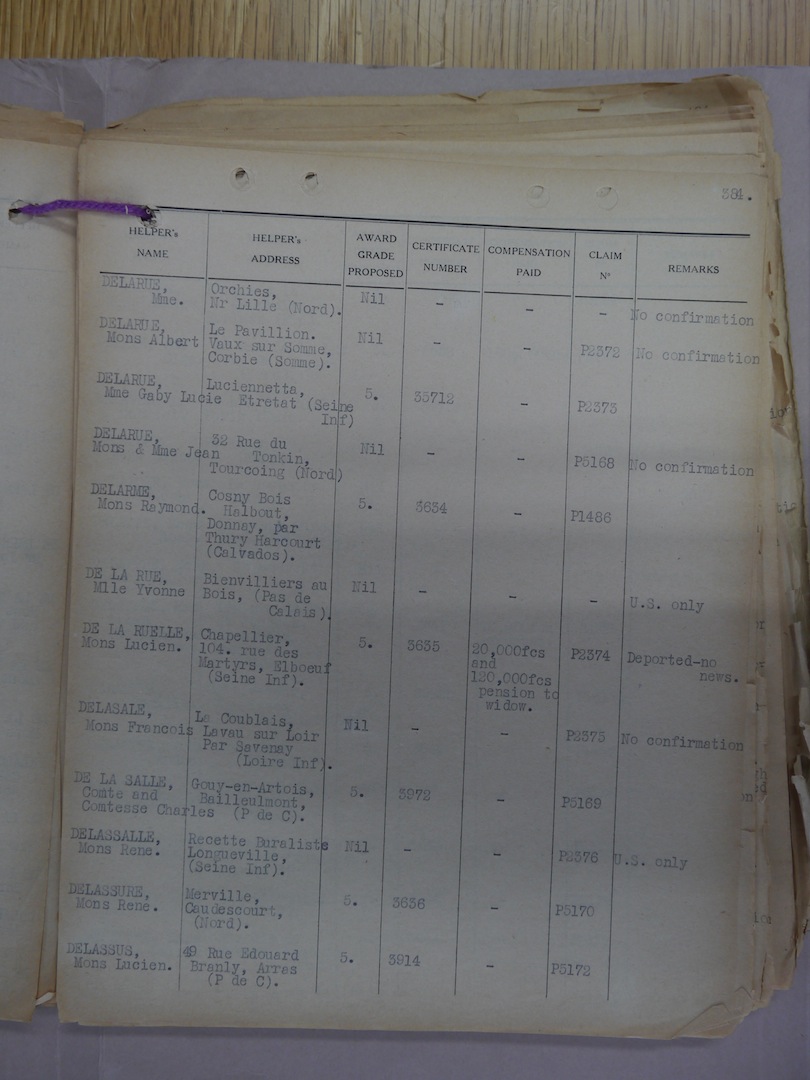 384.
HELPER's NAME
HELPER's ADDRESS
AWARD GRADE PROPOSED
CERTIFICATE NUMBER
COMPENSATION PAID
CLAIM Nº
REMARKS
DELARUE, Orchies, Nil - - - No confirmation
Mme. Nr Lille (Nord).
DELARUE, Le Pavillion. Nil - - P2372 No confirmation
Mons Albert Vaux sur Somme,
Corbie (Somme).
DELARUE, Luciennetta, 5. 35712 - P2373
Mme Gaby Lucie Etretat (Seine
Inf)
DELARUE, 32 Rue du Nil - - P5168 No confirmation
Mons & Mme Jean Tonkin,
Tourcoing (Nord)
DELARME, Cosny Bois 5. 3634 - P1486
Mons Raymond. Halbout,
Donnay, par
Thury Harcourt
(Calvados).
DE LA RUE, Bienvilliers au Nil - - - U.S. only
Mlle Yvonne Bois, (Pas de
Calais).
DE LA RUELLE, Chapellier, 5. 3635 20,000fcs P2374 Deported-no
Mons Lucien. 104. rue des and news.
Martyrs, Elboeuf 120,000fcs
(Seine Inf). pension to
widow.
DELASALE, La Coublais, Nil - - P2375 No confirmation
Mons Francois Lavau sur Loir
Par Savenay
(Loire Inf).
DE LA SALLE, Gouy-en-Artois, 5. 3972 - P5169
Comte and Bailleulmont,
Comtesse Charles (P de C).
DELASSALLE, Recette Buraliste Nil - - P2376 U.S. only
Mons Rene. Longueville,
(Seine Inf).
DELASSURE, Merville, 5. 3636 - P5170
Mons Rene. Caudescourt,
(Nord).
DELASSUS, 49 Rue Edouard 5. 3914 - P5172
Mons Lucien. Branly, Arras
(P de C).